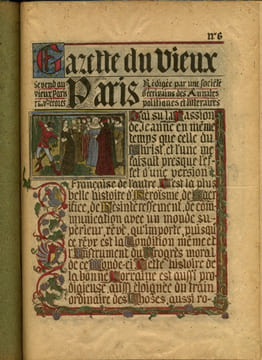 N° 6
Gazette du Vieux
Se vend au
vieux Paris
Paris
Rédigée par une société
d'écrivains des Annales
politiques et littéraires
J'ai su la Passion
de Jeanne en même
temps que celle du
Christ, et l'une me
faisait presque l'ef-
fet d'une version
Française de l'autre. C'est la plus
belle histoire d'Héroïsme, de Sacri-
fice, de Désintéressement, de com-
munication avec un monde su-
périeur, rêvé, qu'importe, puisqu'
ce rêve est la Condition même et
l'Instrument du Progrès moral
de ce Monde-ci. Cette histoire de
la bonne Lorraine est aussi pro-
digieuse, aussi éloignée du train
ordinaire des Choses, aussi ro-